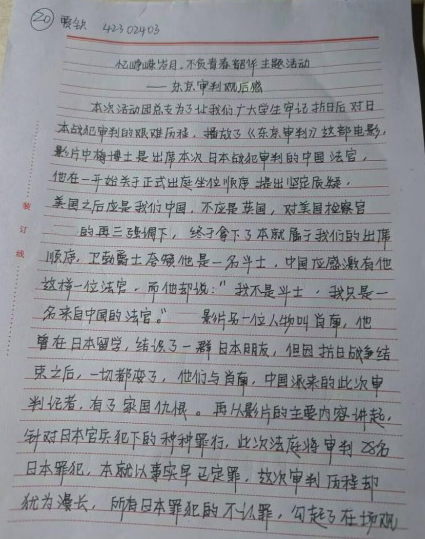 20 42302403
忆峥嵘岁月,不负青春韶华主题活动
——东京审判观后感
本次活动团总支为了让我们广大学生牢记抗日后对日
本战犯审判的艰难历程,播放了《东京审判》这部电影,
影片中梅博士是出席本次日本战犯审判的中国法官,
他在一开始关于正式出庭坐位顺序提出坚定质疑,
美国之后应是我们中国,不应是英国,对美国检察官
的再三强调下,终于拿下了本就属于我们的出席
顺序,卫勃爵士夸奖他是一名斗士,中国应感激有他
这样一位法官,而他却说:“我不是斗士,我只是一
名来自中国的法官。” 影片另一位人物叫肖南,他
曾在日本留学,结识了一群日本朋友,但因抗日战争结
束之后,一切都变了,他们与肖南,中国派来的此次审
判记者,有了家国仇恨。再从影片的主要内容讲起,
针对日本官兵犯下的种种罪行,此次法庭将审判28名
日本罪犯,本就以事实早已定罪,这次审判历程却
犹为漫长,所有日本罪犯的不认罪,勾起了在场观
装
订
线